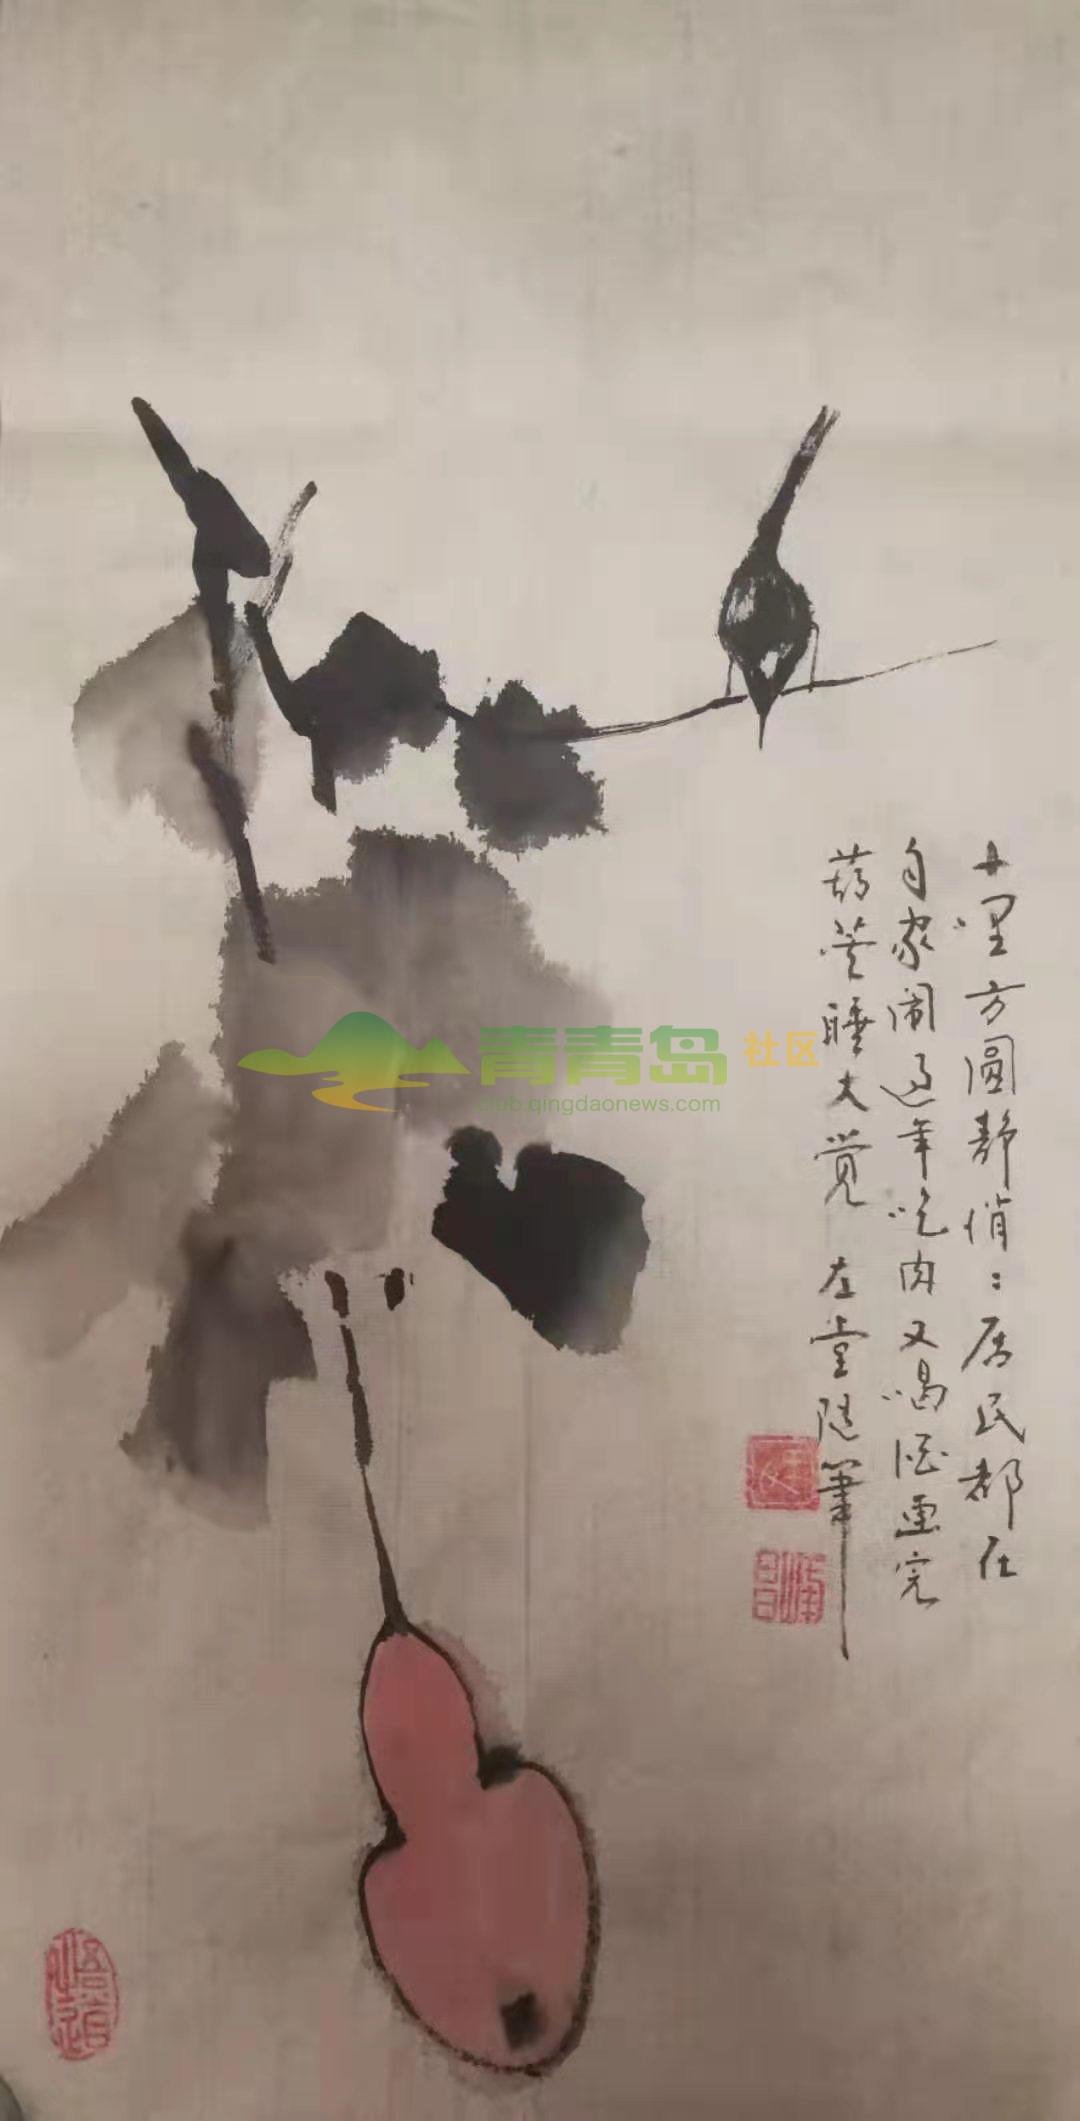 十里方圆静悄〻居民都在
自家闹过年吃肉又喝酒画完
葫芦睡大觉 左堂随筆
悟道
青青岛社区
club.qingdaonews.com